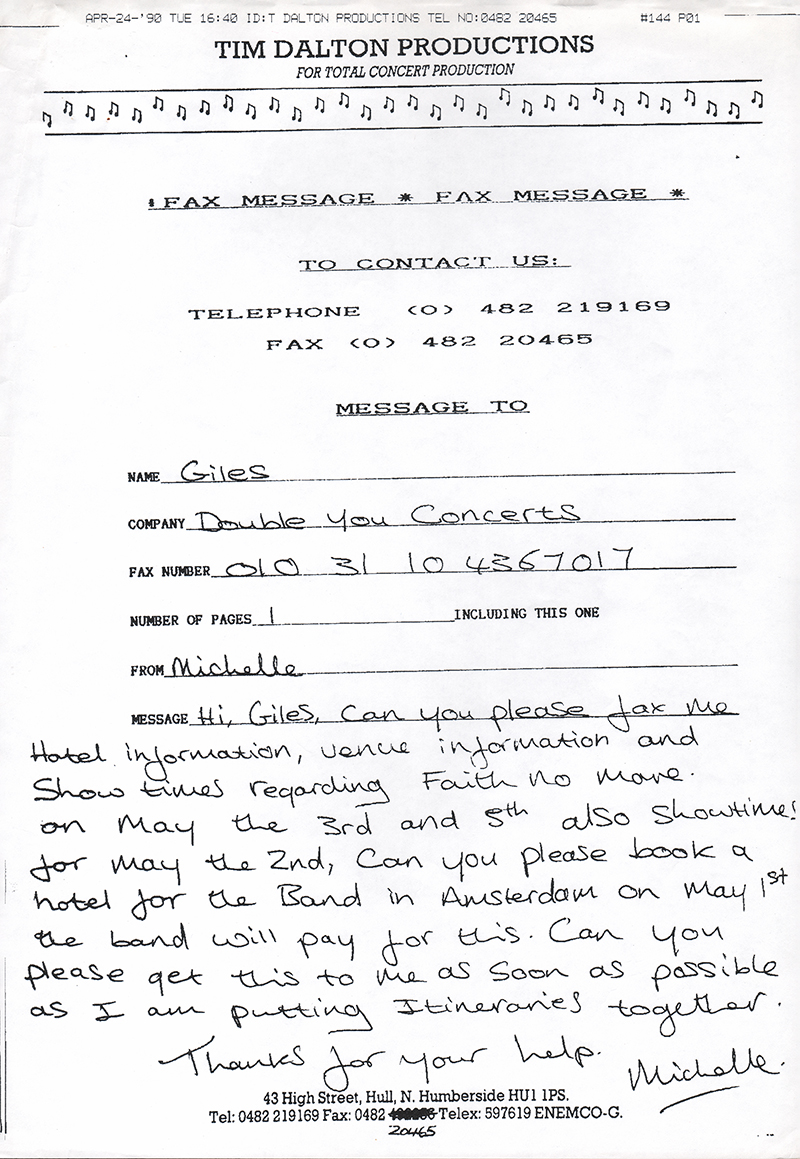 APR-24-'90 TUE 16:40 ID:T DALTON PRODUCTIONS TEL NO:0482 20465 #144 P01
TIM DALTON PRODUCTIONS
FOR TOTAL CONCERT PRODUCTION
* FAX MESSAGE * FAX MESSAGE *
TO CONTACT US:
TELEPHONE (0) 482 219169
FAX (0) 482 20465
MESSAGE TO
NAME Giles
COMPANY Double You Concerts
FAX NUMBER 010 31 10 4367017
NUMBER OF PAGES 1 INCLUDING THIS ONE
FROM Michelle
MESSAGE Hi, Giles, Can you please fax me
Hotel information, venue information and
Show times regarding Faith no more.
on May the 3rd and 5th also Showtimes
for May the 2nd, Can you please book a
hotel for the Band in Amsterdam on May 1st
the band will pay for this. Can you
please get this to me as soon as possible
as I am putting Itineraries together.
Thanks for your help. Michelle.
43 High Street, Hull, N. Humberside HU1 1PS.
Tel: 0482 219169 Fax: 0482 Telex: 597619 ENEMCO-G.
20465